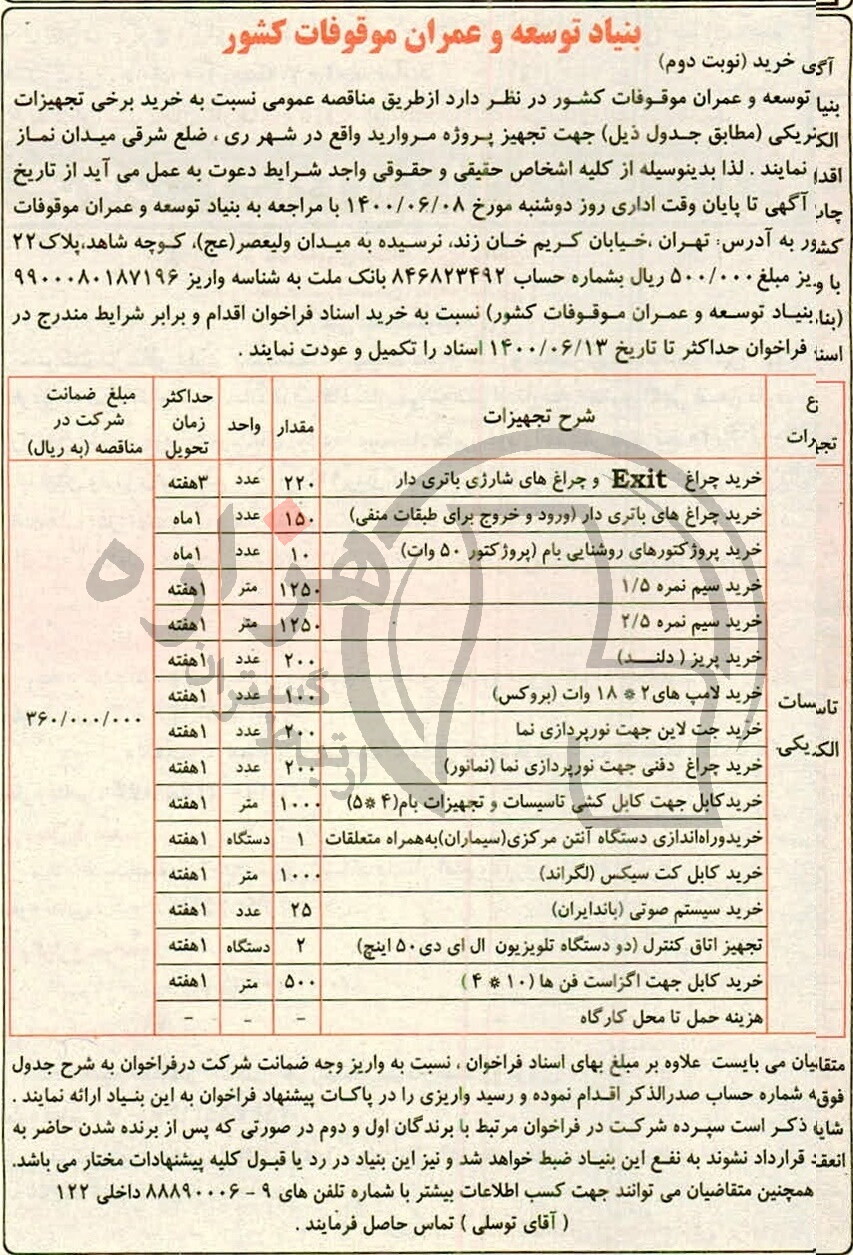 بنیاد توسعه و عمران موقوفات کشور
آگهی خرید (نوبت دوم)
بنیاد توسعه و عمران موقوفات کشور در نظر دارد ازطریق مناقصه عمومی نسبت به خرید برخی تجهیزات
الکتریکی (مطابق جدول ذیل) جهت تجهیز پروژه مروارید واقع در شهر ری ، ضلع شرقی میدان نماز
اقدام نمایند . لذا بدینوسیله از کلیه اشخاص حقیقی و حقوقی واجد شرایط دعوت به عمل می آید از تاریخ
چاپ آگهی تا پایان وقت اداری روز دوشنبه مورخ ۱۴۰۰/۰۶/۰۸ با مراجعه به بنیاد توسعه و عمران موقوفات
کشور به آدرس: تهران ،خیابان کریم خان زند، نرسیده به میدان ولیعصر(عج)، کوچه شاهد،پلاک۲۲
با واریز مبلغ ۵۰۰/۰۰۰ ریال بشماره حساب ۸۴۶۸۲۳۴۹۲ بانک ملت به شناسه واریز ۹۹۰۰۰۸۰۱۸۷۱۹۶
(بنام بنیاد توسعه و عمران موقوفات کشور) نسبت به خرید اسناد فراخوان اقدام و برابر شرایط مندرج در
اسناد فراخوان حداکثر تا تاریخ ۱۴۰۰/۰۶/۱۳ اسناد را تکمیل و عودت نمایند .
نوع تجهیزات شرح تجهیزات مقدار واحد حداکثر زمان تحویل مبلغ ضمانت شرکت در مناقصه (به ریال)
تاسیسات الکتریکی
خرید چراغ Exit و چراغ های شارژی باتری دار ۲۲۰ عدد ۳هفته
خرید چراغ های باتری دار (ورود و خروج برای طبقات منفی) ۱۵۰ عدد ۱ماه
خرید پروژکتورهای روشنایی بام (پروژکتور ۵۰ وات) ۱۰ عدد ۱ماه
خرید سیم نمره ۱/۵ ۱۲۵۰ متر ۱هفته
خرید سیم نمره ۲/۵ ۱۲۵۰ متر ۱هفته
خرید پریز ( دلند) ۲۰۰ عدد ۱هفته
خرید لامپ های۲ * ۱۸ وات (بروکس) ۱۰۰ عدد ۱هفته
خرید جت لاین جهت نورپردازی نما ۲۰۰ عدد ۱هفته
خرید چراغ دفنی جهت نورپردازی نما (نمانور) ۲۰۰ عدد ۱هفته
خریدکابل جهت کابل کشی تاسیسات و تجهیزات بام(۴ *۵) ۱۰۰۰ متر ۱هفته
خریدوراه‌اندازی دستگاه آنتن مرکزی(سیماران)به‌همراه متعلقات ۱ دستگاه ۱هفته
خرید کابل کت سیکس (لگراند) ۱۰۰۰ متر ۱هفته
خرید سیستم صوتی (باندایران) ۲۵ عدد ۱هفته
تجهیز اتاق کنترل (دو دستگاه تلویزیون ال ای دی۵۰ اینچ) ۲ دستگاه ۱هفته
خرید کابل جهت اگزاست فن ها (۱۰ * ۴ ) ۵۰۰ متر ۱هفته
هزینه حمل تا محل کارگاه - - -
۳۶۰/۰۰۰/۰۰۰
متقاضیان می بایست علاوه بر مبلغ بهای اسناد فراخوان ، نسبت به واریز وجه ضمانت شرکت درفراخوان به شرح جدول
فوق به شماره حساب صدرالذکر اقدام نموده و رسید واریزی را در پاکات پیشنهاد فراخوان به این بنیاد ارائه نمایند .
شایان ذکر است سپرده شرکت در فراخوان مرتبط با برندگان اول و دوم در صورتی که پس از برنده شدن حاضر به
انعقاد قرارداد نشوند به نفع این بنیاد ضبط خواهد شد و نیز این بنیاد در رد یا قبول کلیه پیشنهادات مختار می باشد.
همچنین متقاضیان می توانند جهت کسب اطلاعات بیشتر با شماره تلفن های ۹ - ۸۸۸۹۰۰۰۶ داخلی ۱۲۲
( آقای توسلی ) تماس حاصل فرمایند .
هزاره